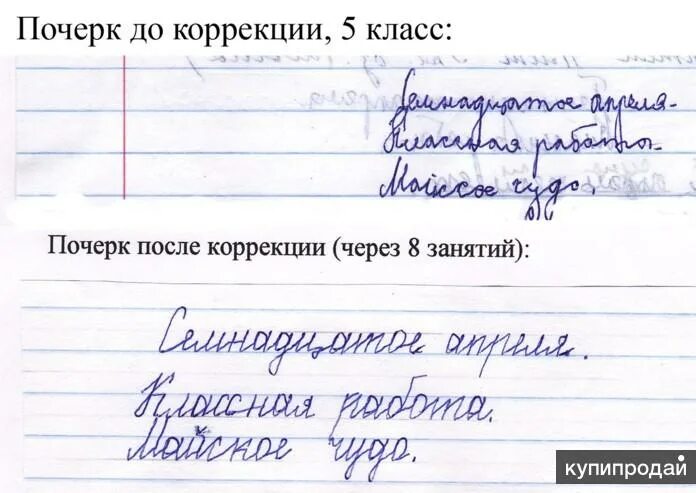 Почерк до коррекции, 5 класс:
Семнадцатое апреля.
Классная работа.
Майское чудо.
Почерк после коррекции (через 8 занятий):
Семнадцатое апреля.
Классная работа.
Майское чудо.
купипродай